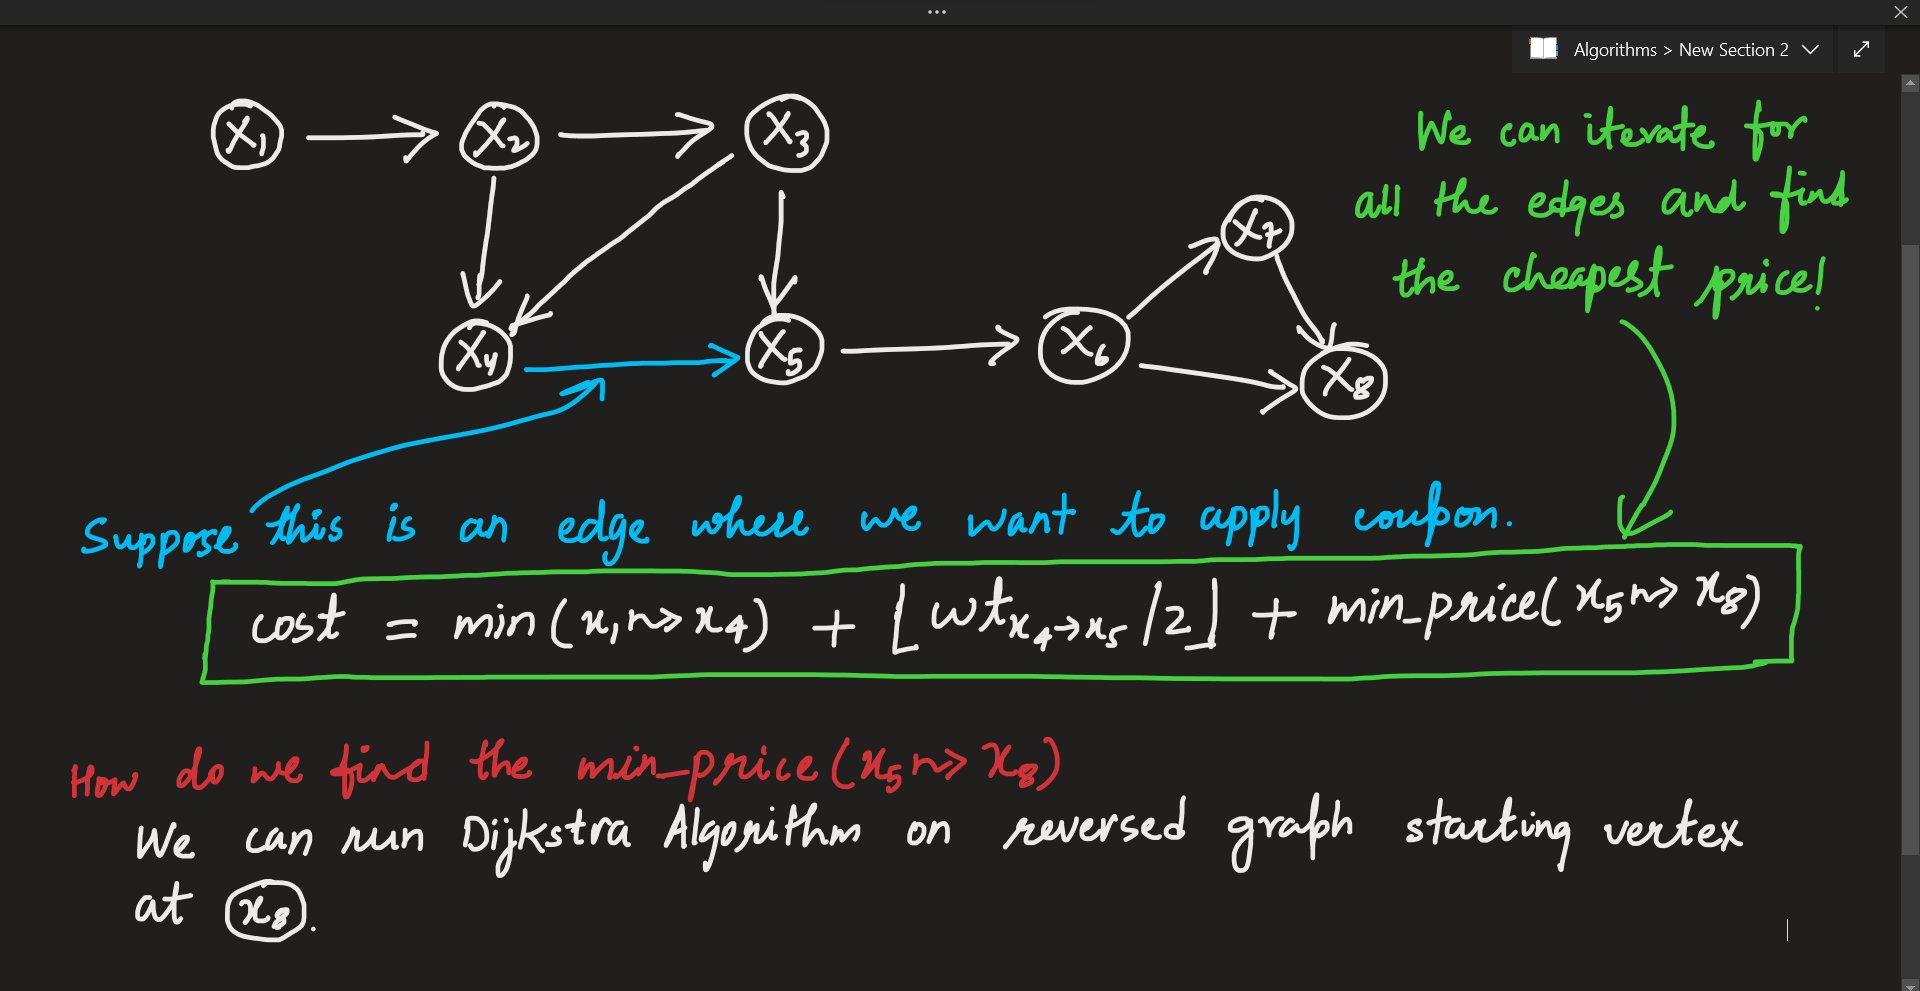 Algorithms > New Section 2
X1
X2
X3
X4
X5
X6
X7
X8
We can iterate for
all the edges and find
the cheapest price!
Suppose this is an edge where we want to apply coupon.
cost = min(x1 ⇝ x4) + ⌊wt x4→x5 /2⌋ + min_price(x5 ⇝ x8)
How do we find the min_price(x5 ⇝ x8)
We can run Dijkstra Algorithm on reversed graph starting vertex
at x8.